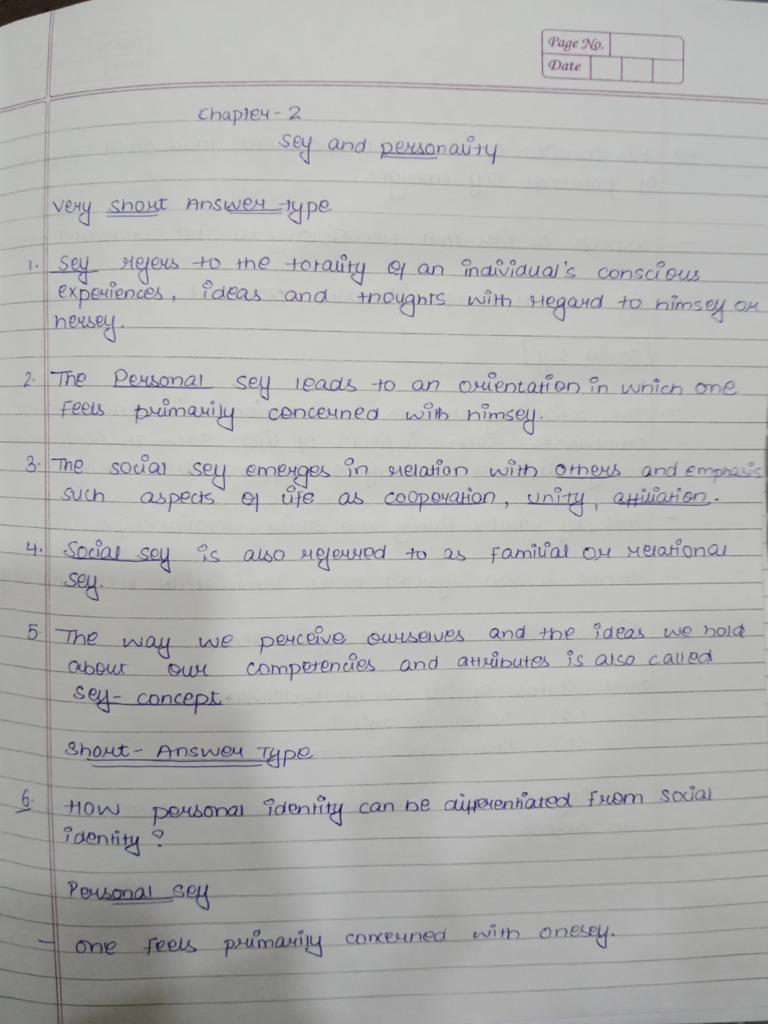 Page No.
Date
Chapter - 2
Self and personality
Very Short Answer Type
1. Self refers to the totality of an individual's conscious
experiences, ideas and thoughts with regard to himself or
herself.
2. The Personal self leads to an orientation in which one
feels primarily concerned with himself.
3. The social self emerges in relation with others and emphasis
such aspects of life as cooperation, unity, affiliation.
4. Social self is also referred to as familial or relational
self.
5. The way we perceive ourselves and the ideas we hold
about our competencies and attributes is also called
self-concept.
Short-Answer Type
6. How personal identity can be differentiated from social
identity?
Personal self
- one feels primarily concerned with oneself.